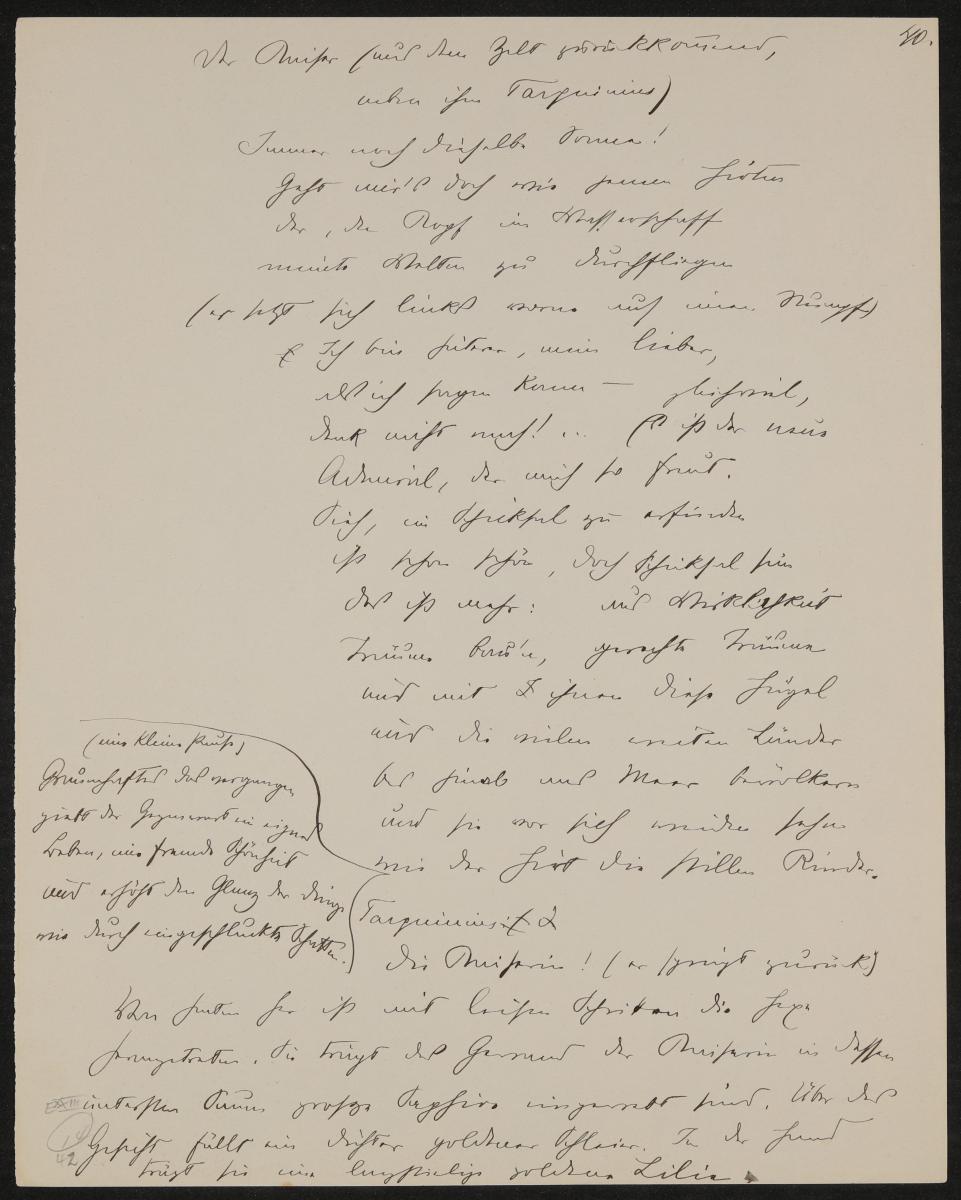 40.
Der Kaiser (aus dem Zelt zurückkommend,
neben ihm Tarquinius)
Immer noch dieselbe Sonne!
Geht mir's doch wie jenem Hirten
der, den Kopf im Wasserschaff
meinte Welten zu durchfliegen
(er setzt sich links vorne auf einen Stumpf)
Ich bin heiterer, mein Lieber,
als ich sagen kann — gleichviel,
denk nicht nach! ... 's ist der neue
Admiral, der mich so freut.
Sieh, ein Schicksal zu erfinden
ist schon schön, doch Schicksal sein
das ist mehr: aus Wirklichkeit
Träume bau'n, gerechte Träume
und mit ihnen diese Hügel
und die vielen weiten Länder
bis hinab ans Meer bevölkern
und sie vor sich weiden sehn
wie der Hirt die stillen Rinder.
(eine kleine Pause)
Grauenhaftes das vergangen
giebt der Gegenwart ein eignes
Leben, eine fremde Schönheit
und erhöht den Glanz der Dinge
wie durch eingeschluckte Schatten.
Tarquinius:
die Kaiserin! (er springt zurück)
Von hinten her ist mit leisen Schritten die Hexe
herangetreten. Sie trägt das Gewand der Kaiserin in dessen
untersten Saum grosse Saphire eingewebt sind. Über das
Gesicht fällt ein dichter goldener Schleier. In der Hand
trägt sie eine langstielige goldene Lilie.
42